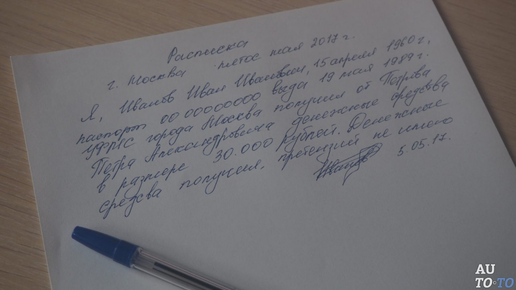 Расписка
г. Москва пятое мая 2017 г.
Я, Иванов Иван Иванович, 15 апреля 1960 г,
паспорт 00 00000000 выдан 19 мая 1989 г.
УФМС города Москва получил от Петрова
Петра Александровича денежные средства
в размере 30 000 рублей. Денежные
средства получил, претензий не имею
5.05.17.
AU
TO TO